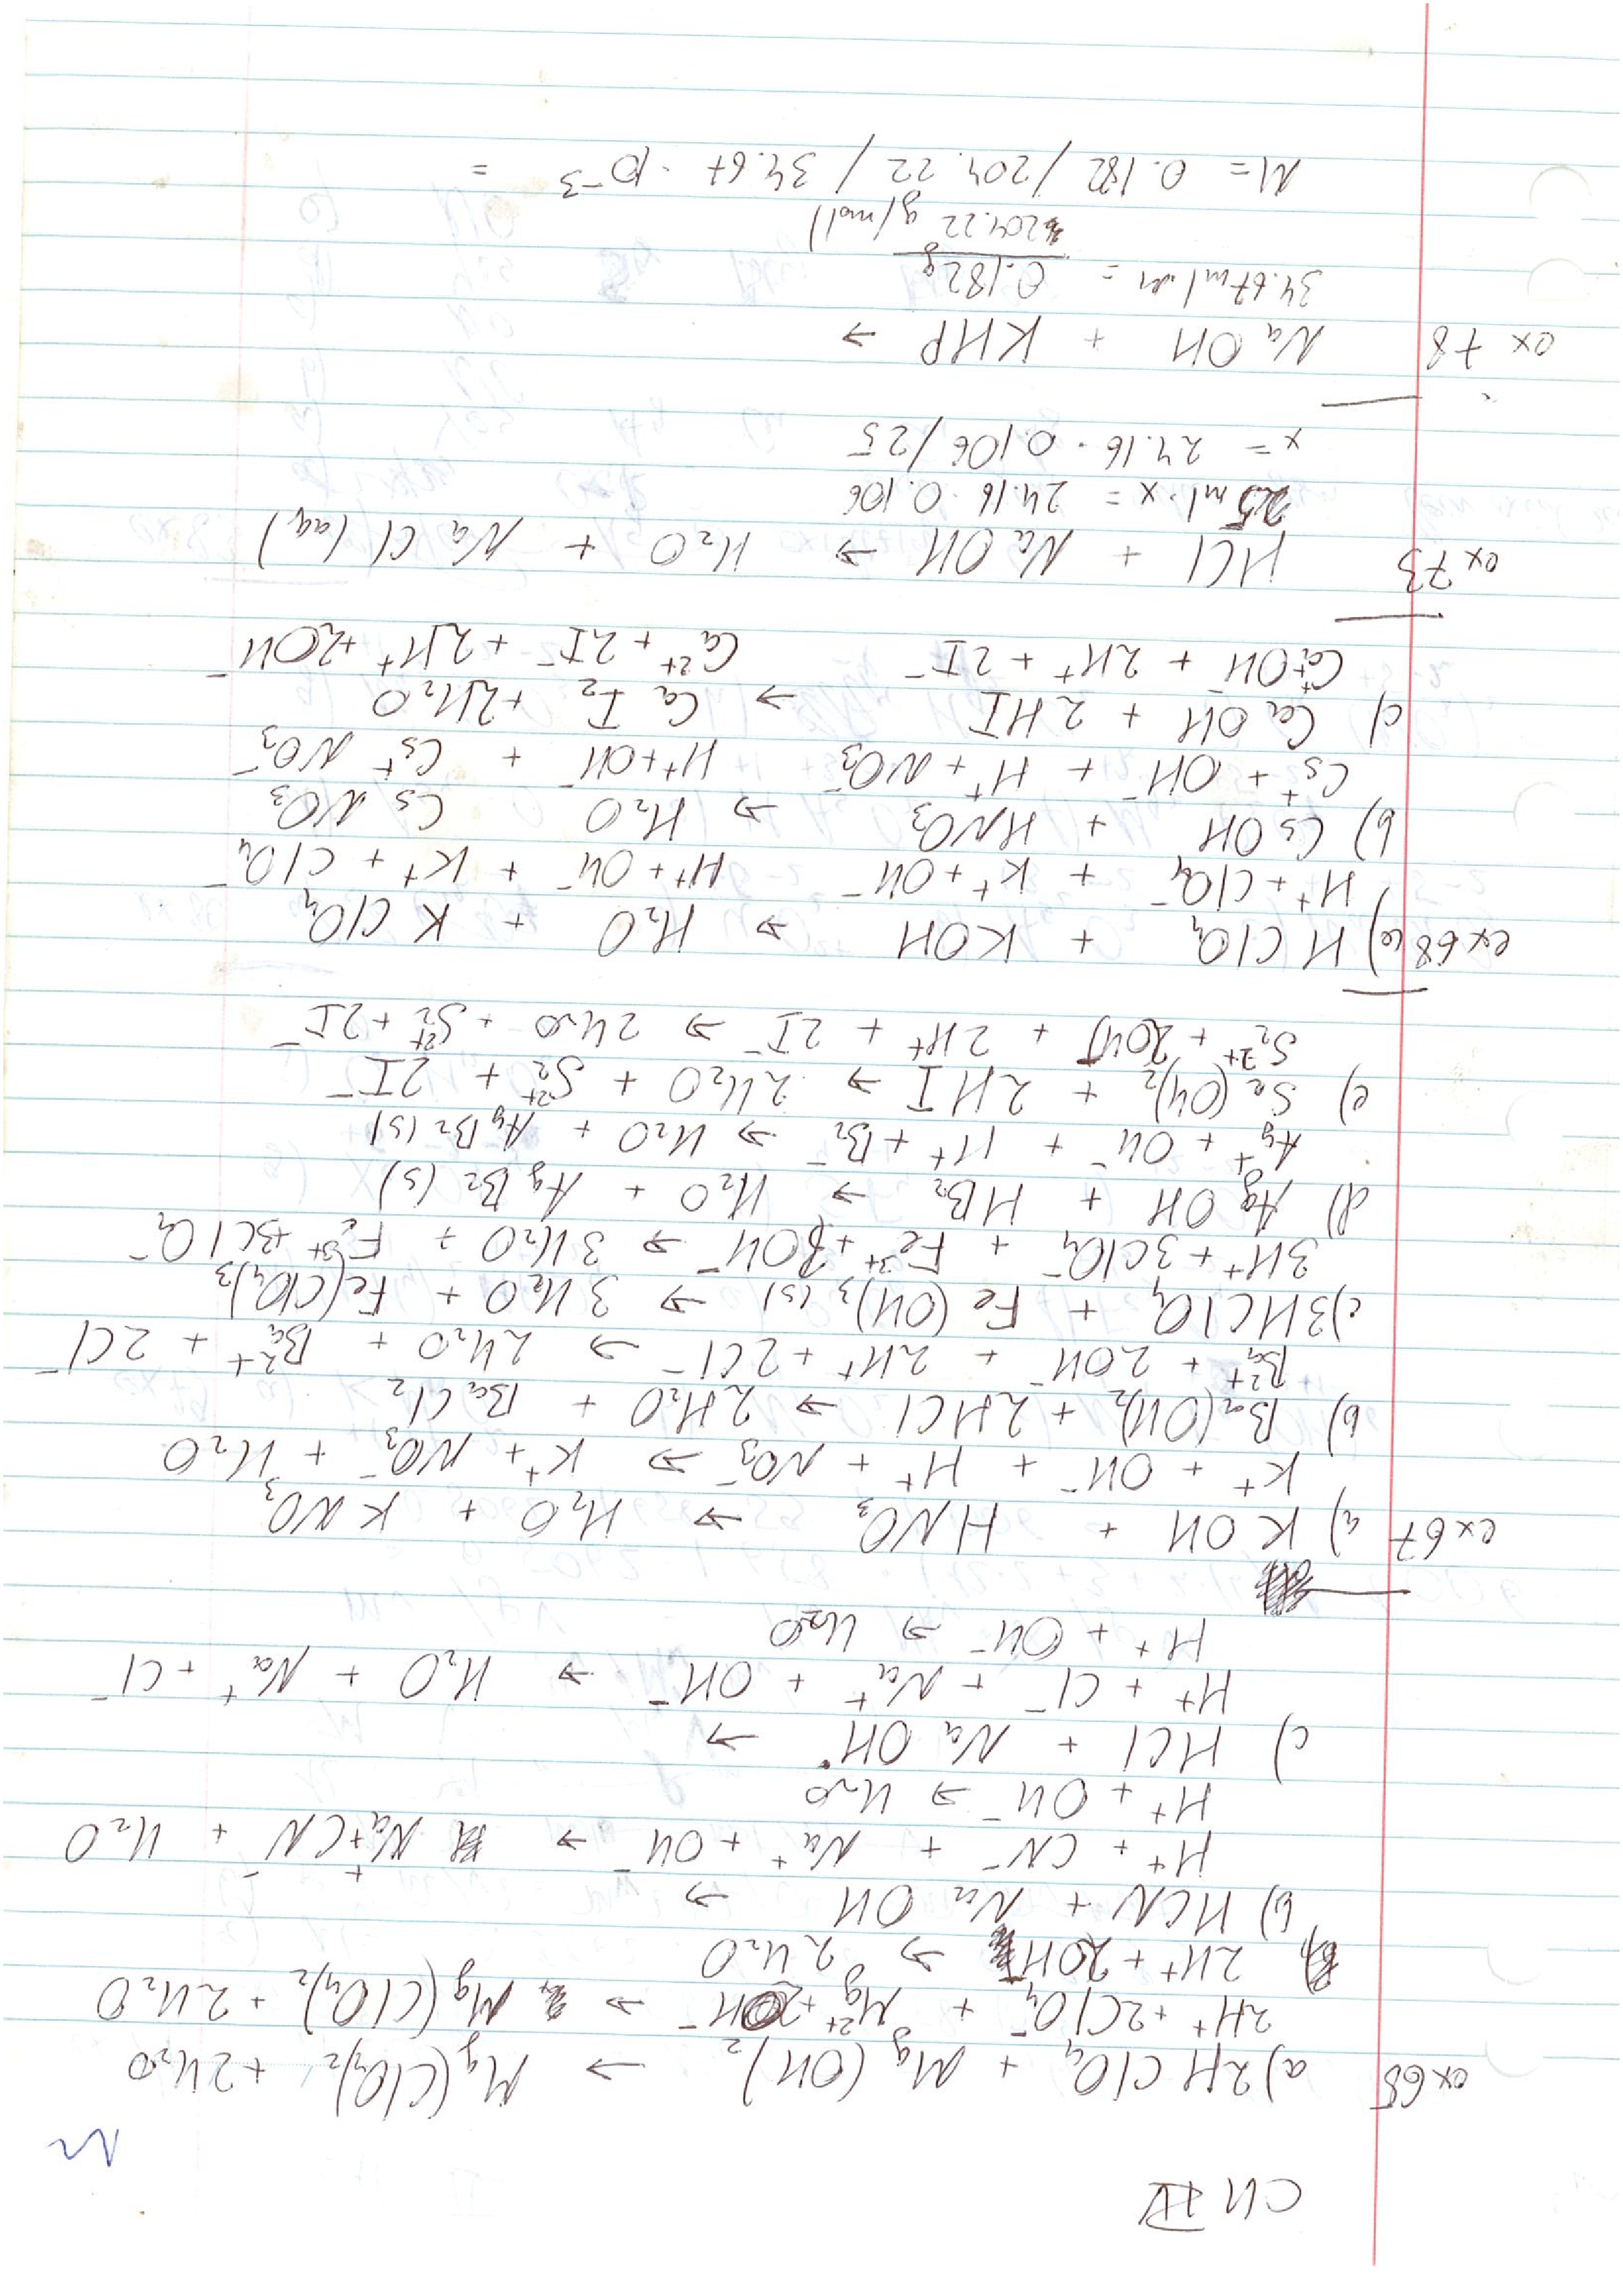 CH IV
ex 65 a) 2HClO₄ + Mg(OH)₂ → Mg(ClO₄)₂ + 2H₂O
2H⁺ + 2ClO₄⁻ + Mg²⁺ + 2OH⁻ → Mg(ClO₄)₂ + 2H₂O
2H⁺ + 2OH⁻ → 2H₂O
b) HCN + NaOH →
H⁺ + CN⁻ + Na⁺ + OH⁻ → Na⁺ + CN⁻ + H₂O
H⁺ + OH⁻ → H₂O
c) HCl + NaOH →
H⁺ + Cl⁻ + Na⁺ + OH⁻ → H₂O + Na⁺ + Cl⁻
H⁺ + OH⁻ → H₂O
ex 67 a) KOH + HNO₃ → H₂O + KNO₃
K⁺ + OH⁻ + H⁺ + NO₃⁻ → K⁺ + NO₃⁻ + H₂O
b) Ba(OH)₂ + 2HCl → 2H₂O + BaCl₂
Ba²⁺ + 2OH⁻ + 2H⁺ + 2Cl⁻ → 2H₂O + Ba²⁺ + 2Cl⁻
c) 3HClO₄ + Fe(OH)₃(s) → 3H₂O + Fe(ClO₄)₃
3H⁺ + 3ClO₄⁻ + Fe³⁺ + 3OH⁻ → 3H₂O + Fe³⁺ + 3ClO₄⁻
d) AgOH + HBr → H₂O + AgBr(s)
Ag⁺ + OH⁻ + H⁺ + Br⁻ → H₂O + AgBr(s)
e) Sr(OH)₂ + 2HI → 2H₂O + Sr²⁺ + 2I⁻
Sr²⁺ + 2OH⁻ + 2H⁺ + 2I⁻ → 2H₂O + Sr²⁺ + 2I⁻
ex 68 a) HClO₄ + KOH → H₂O + KClO₄
H⁺ + ClO₄⁻ + K⁺ + OH⁻ H⁺ + OH⁻ + K⁺ + ClO₄⁻
b) CsOH + HNO₃ → H₂O CsNO₃
Cs⁺ + OH⁻ + H⁺ + NO₃⁻ H⁺ + OH⁻ + Cs⁺ NO₃⁻
c) CaOH + 2HI → CaI₂ + 2H₂O
Ca⁺ + OH⁻ + 2H⁺ + 2I⁻ Ca²⁺ + 2I⁻ + 2H⁺ + 2OH⁻
ex 73 HCl + NaOH → H₂O + NaCl(aq)
25ml · x = 24.16 · 0.106
x = 24.16 · 0.106 / 25
ex 78 NaOH + KHP →
34.67ml · M = 0.182g
204.22 g/mol
M = 0.182 / 204.22 / 34.67 · 10⁻³ =